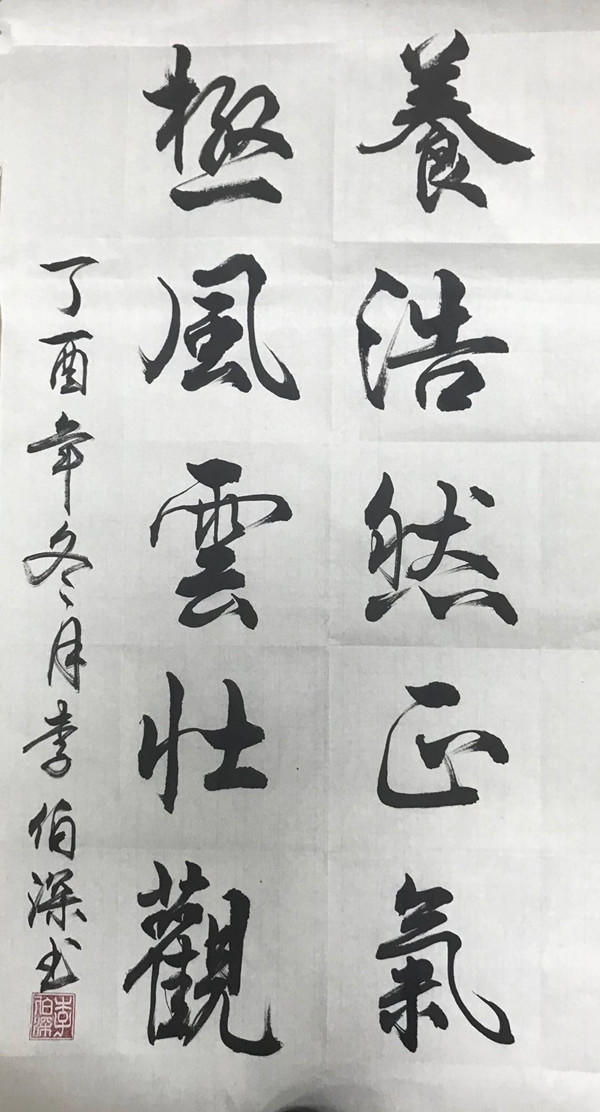 養浩然正氣
極風雲壯觀
丁酉年冬月李伯深书
李伯深